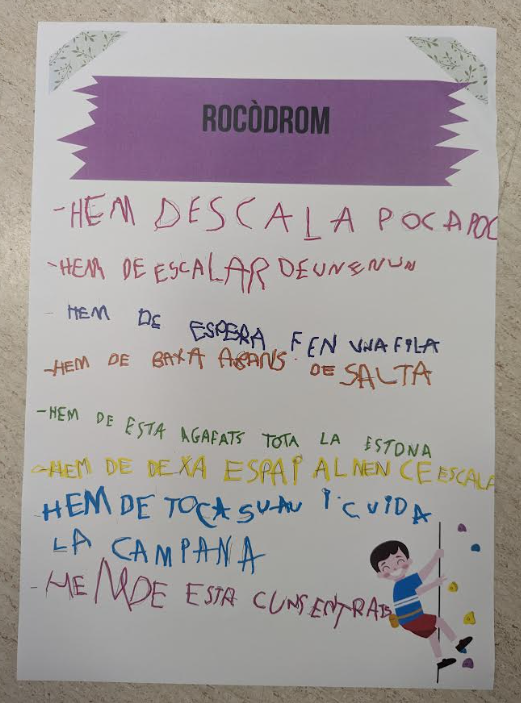 ROCÒDROM
-HEM DESCALA POCAPOC
-HEM DE ESCALAR DEUNENUN
- HEM DE ESPERA FEN UNA FILA
-HEM DE BAXA ABANS DE SALTA
-HEM DE ESTA AGAFATS TOTA LA ESTONA
-HEM DE DEXA ESPAI ALNEN CE ESCALA
-HEM DE TOCA SUAU I CUIDA
LA CAMPANA
-HEM DE ESTA CUNSENTRATS